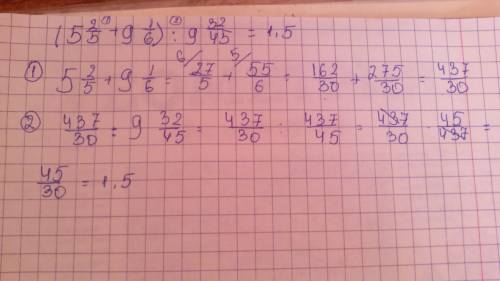 (5 2/5 + 9 1/6) : 9 32/45 = 1,5
① 5 2/5 + 9 1/6 = 27/5 + 55/6 = 162/30 + 275/30 = 437/30
② 437/30 : 9 32/45 = 437/30 : 437/45 = 437/30 · 45/437 =
45/30 = 1,5